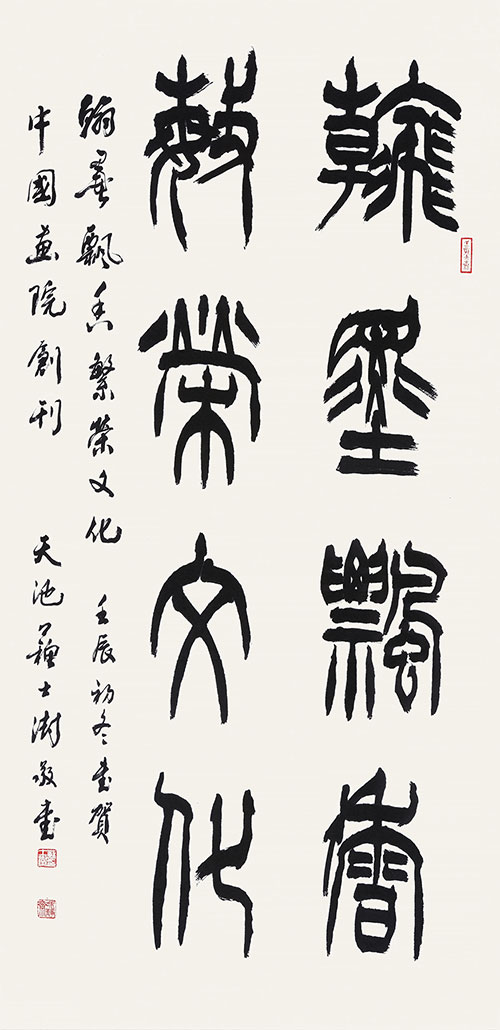 翰墨飄香
繁榮文化
翰墨飄香繁榮文化 壬辰初冬書賀
中國畫院創刊 天池蘇士澍敬書